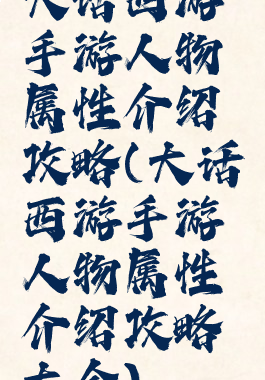 大话西游
手游人物
属性介绍
攻略(大话
西游手游
人物属性
介绍攻略
大全)